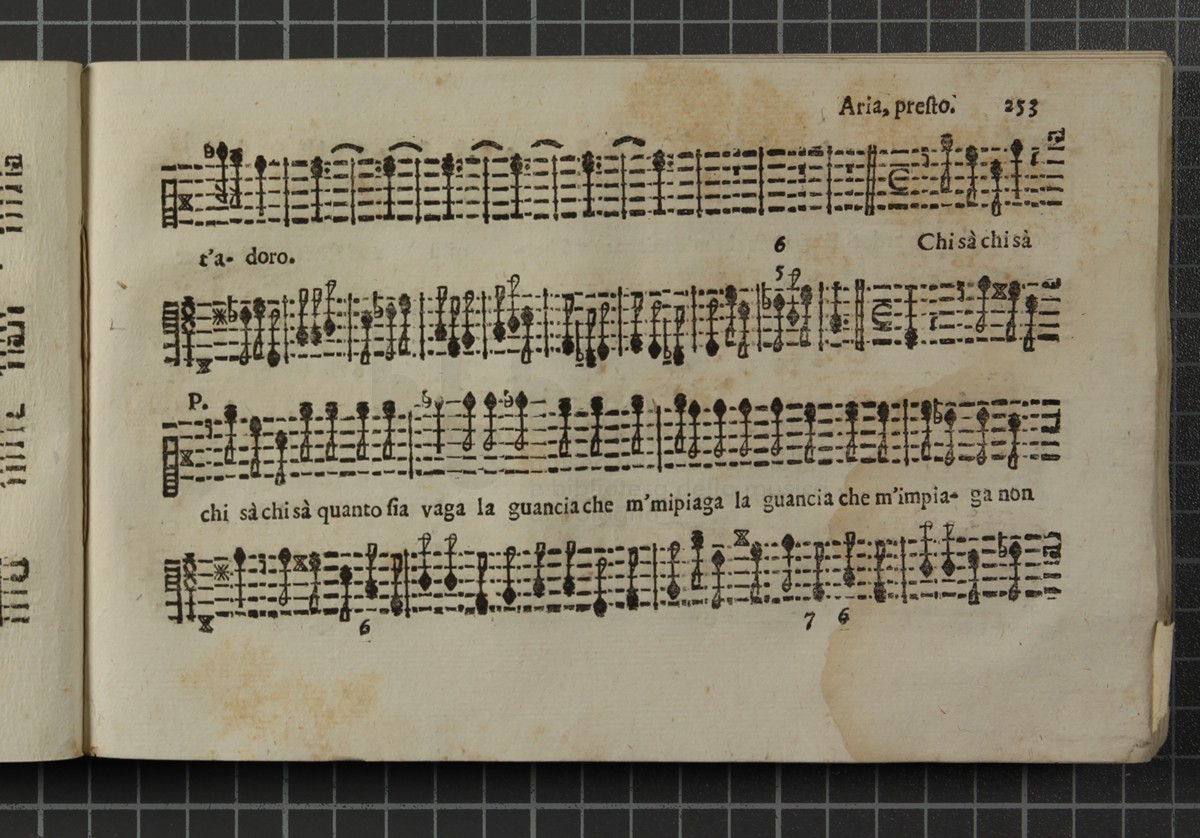 Aria, preſto. 253
t'a- doro. 6 Chi sà chi sà
5
P.
chi sà chi sà quanto ſia vaga la guancia che m'mipiaga la guancia che m'impia- ga non
6 7 6